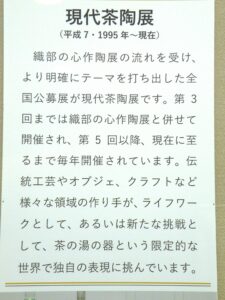 現代茶陶展
(平成7・1995年~現在)
織部の心作陶展の流れを受け、
より明確にテーマを打ち出した全
国公募展が現代茶陶展です。第3
回までは織部の心作陶展と併せて
開催され、第5回以降、現在に至
るまで毎年開催されています。伝
統工芸やオブジェ、クラフトなど
様々な領域の作り手が、ライフワー
クとして、あるいは新たな挑戦と
して、茶の湯の器という限定的な
世界で独自の表現に挑んでいます。